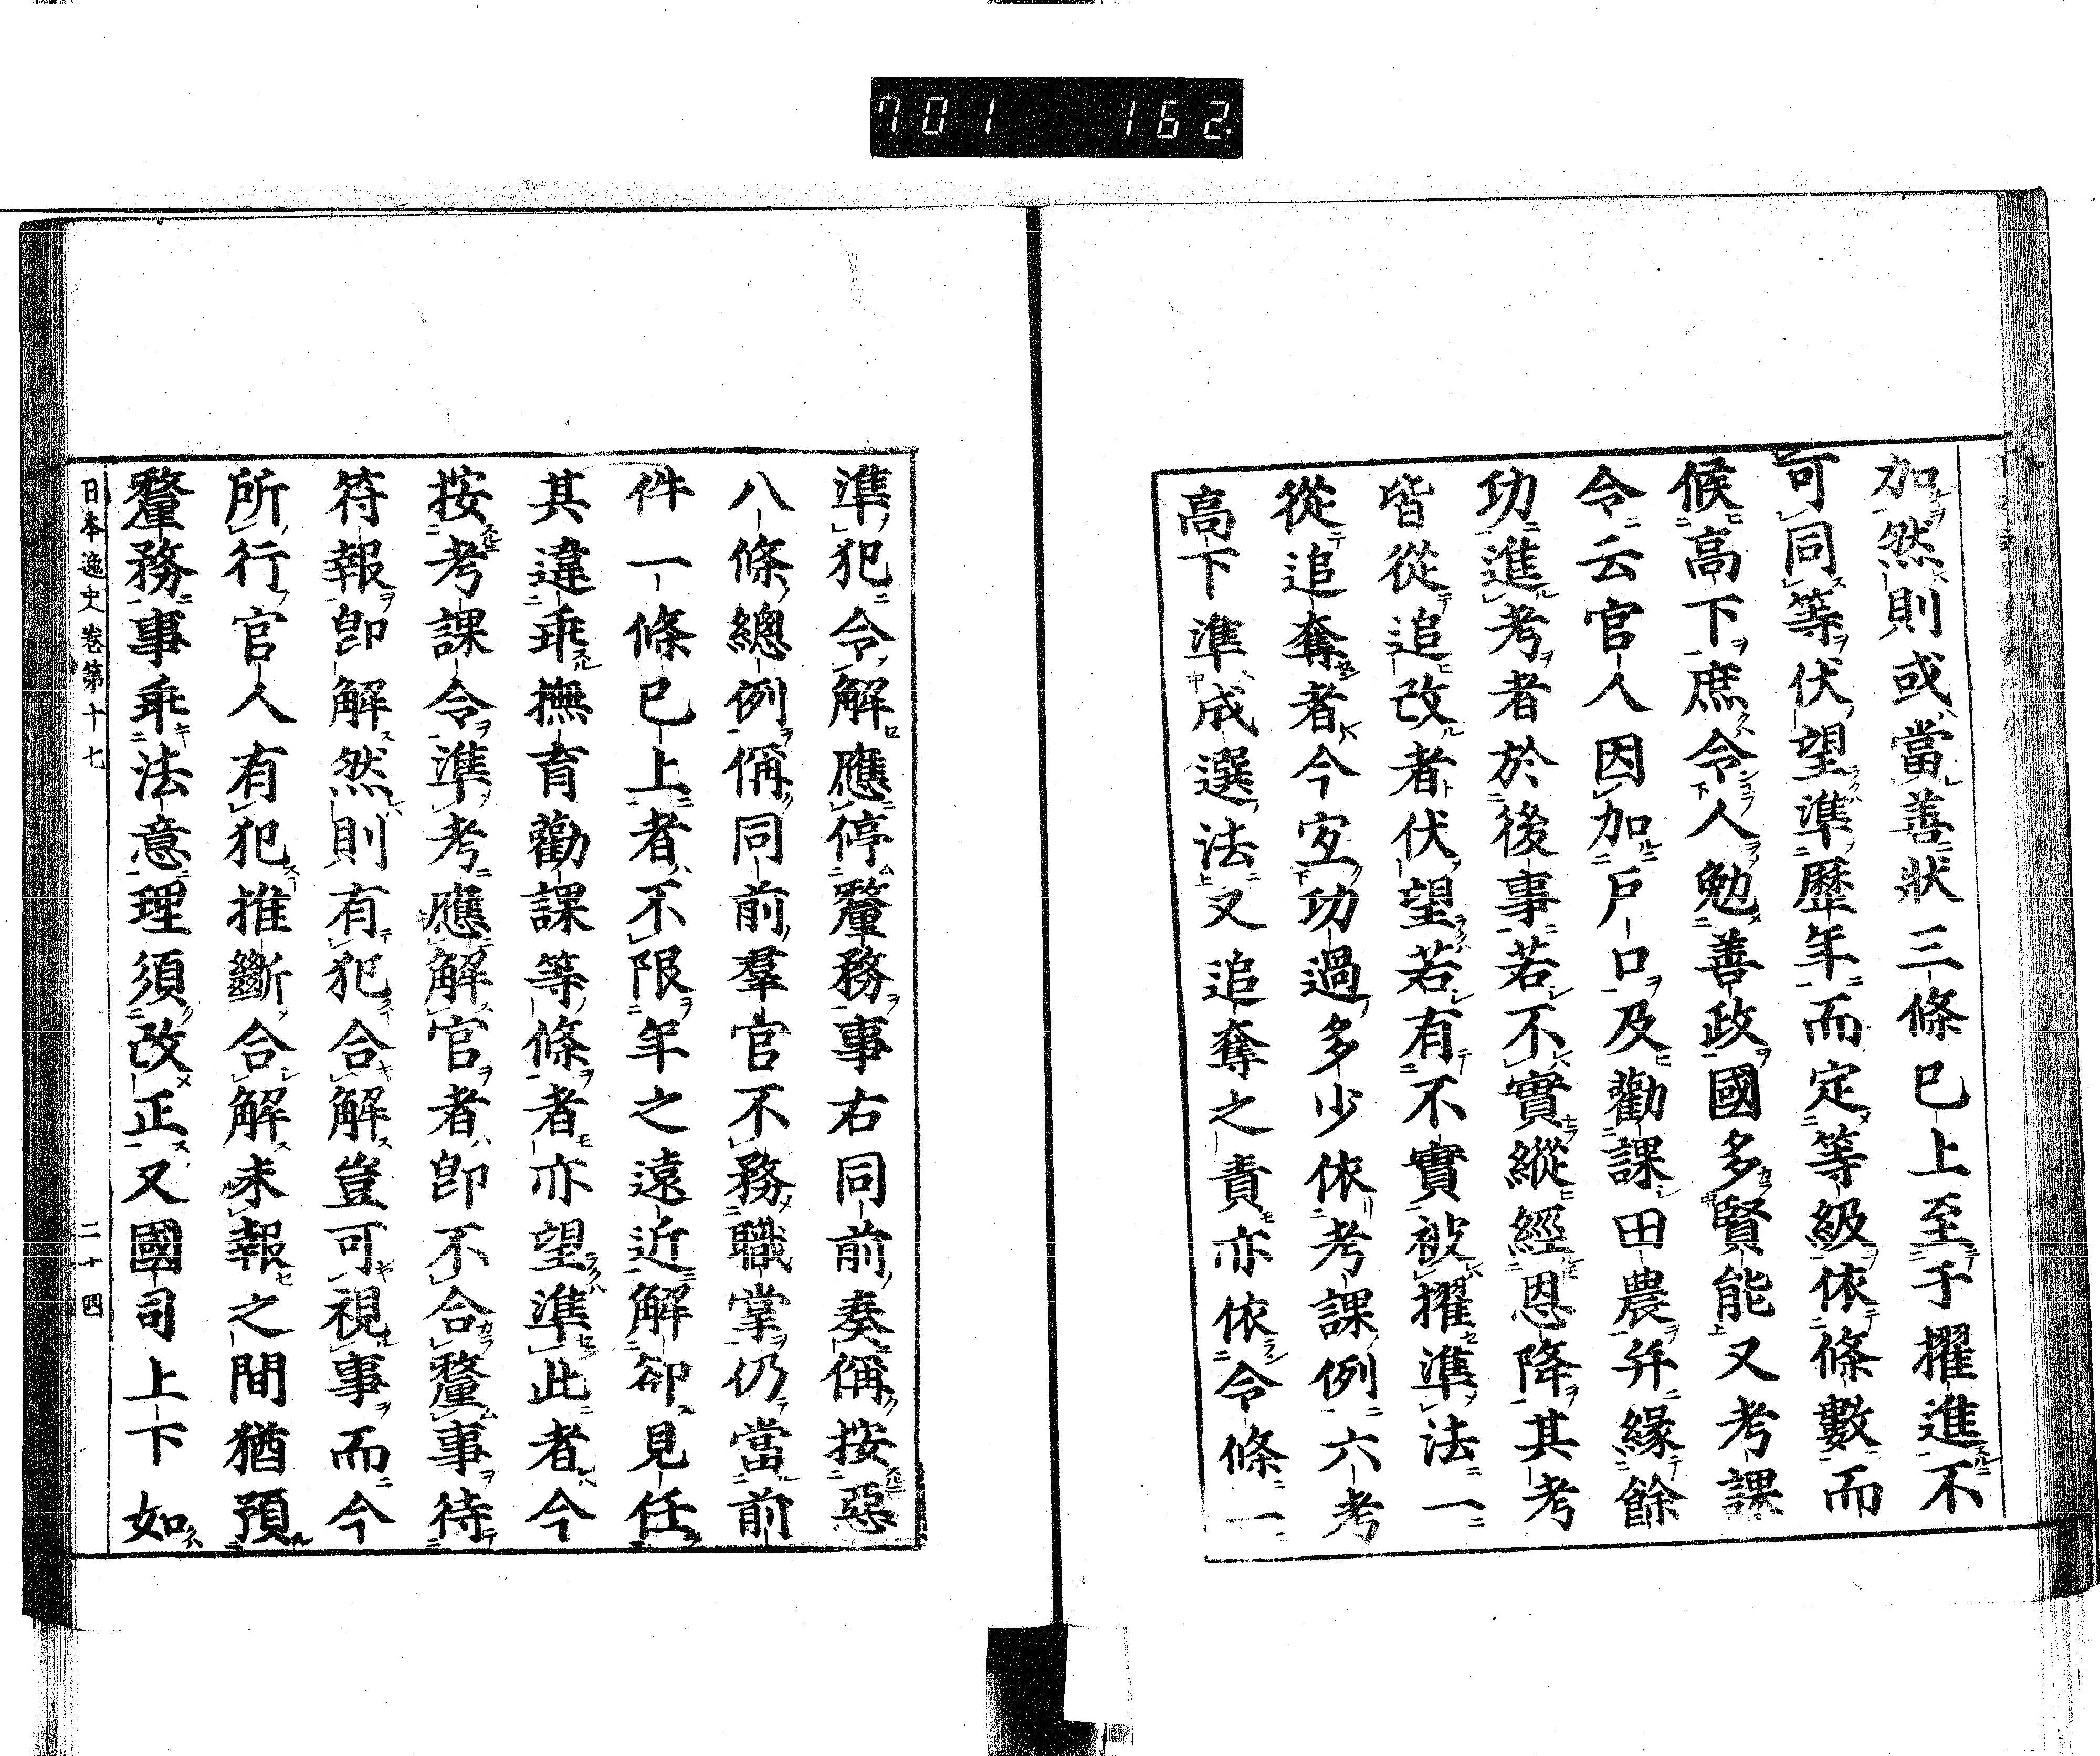 701 162.
加然則或當善狀三條已上至于擢進不
可同等伏望準歷年而定等級依條數而
候高下庶令人勉善政國多賢能又考課
令云官人因加戶口及勸課田農并緣餘
功進考者於後事若不實縱經恩降其考
皆從追改者伏望若有不實被擢準法一
從追奪者今宐功過多少依考課例六考
高下準成選法又追奪之責亦依令條一
準犯令解應停釐務事右同前奏偁按惡
八條總例偁同前羣官不務職掌仍當前
件一條已上者不限年之遠近解卻見任
其違乖撫育勸課等條者亦望準此者今
按考課令準考應解官者卽不合釐事待
符報卽解然則有犯合解豈可視事而今
所行官人有犯推斷合解未報之間猶預
釐務事乖法意理須改正又國司上下如
日本逸史卷第十七 二十四